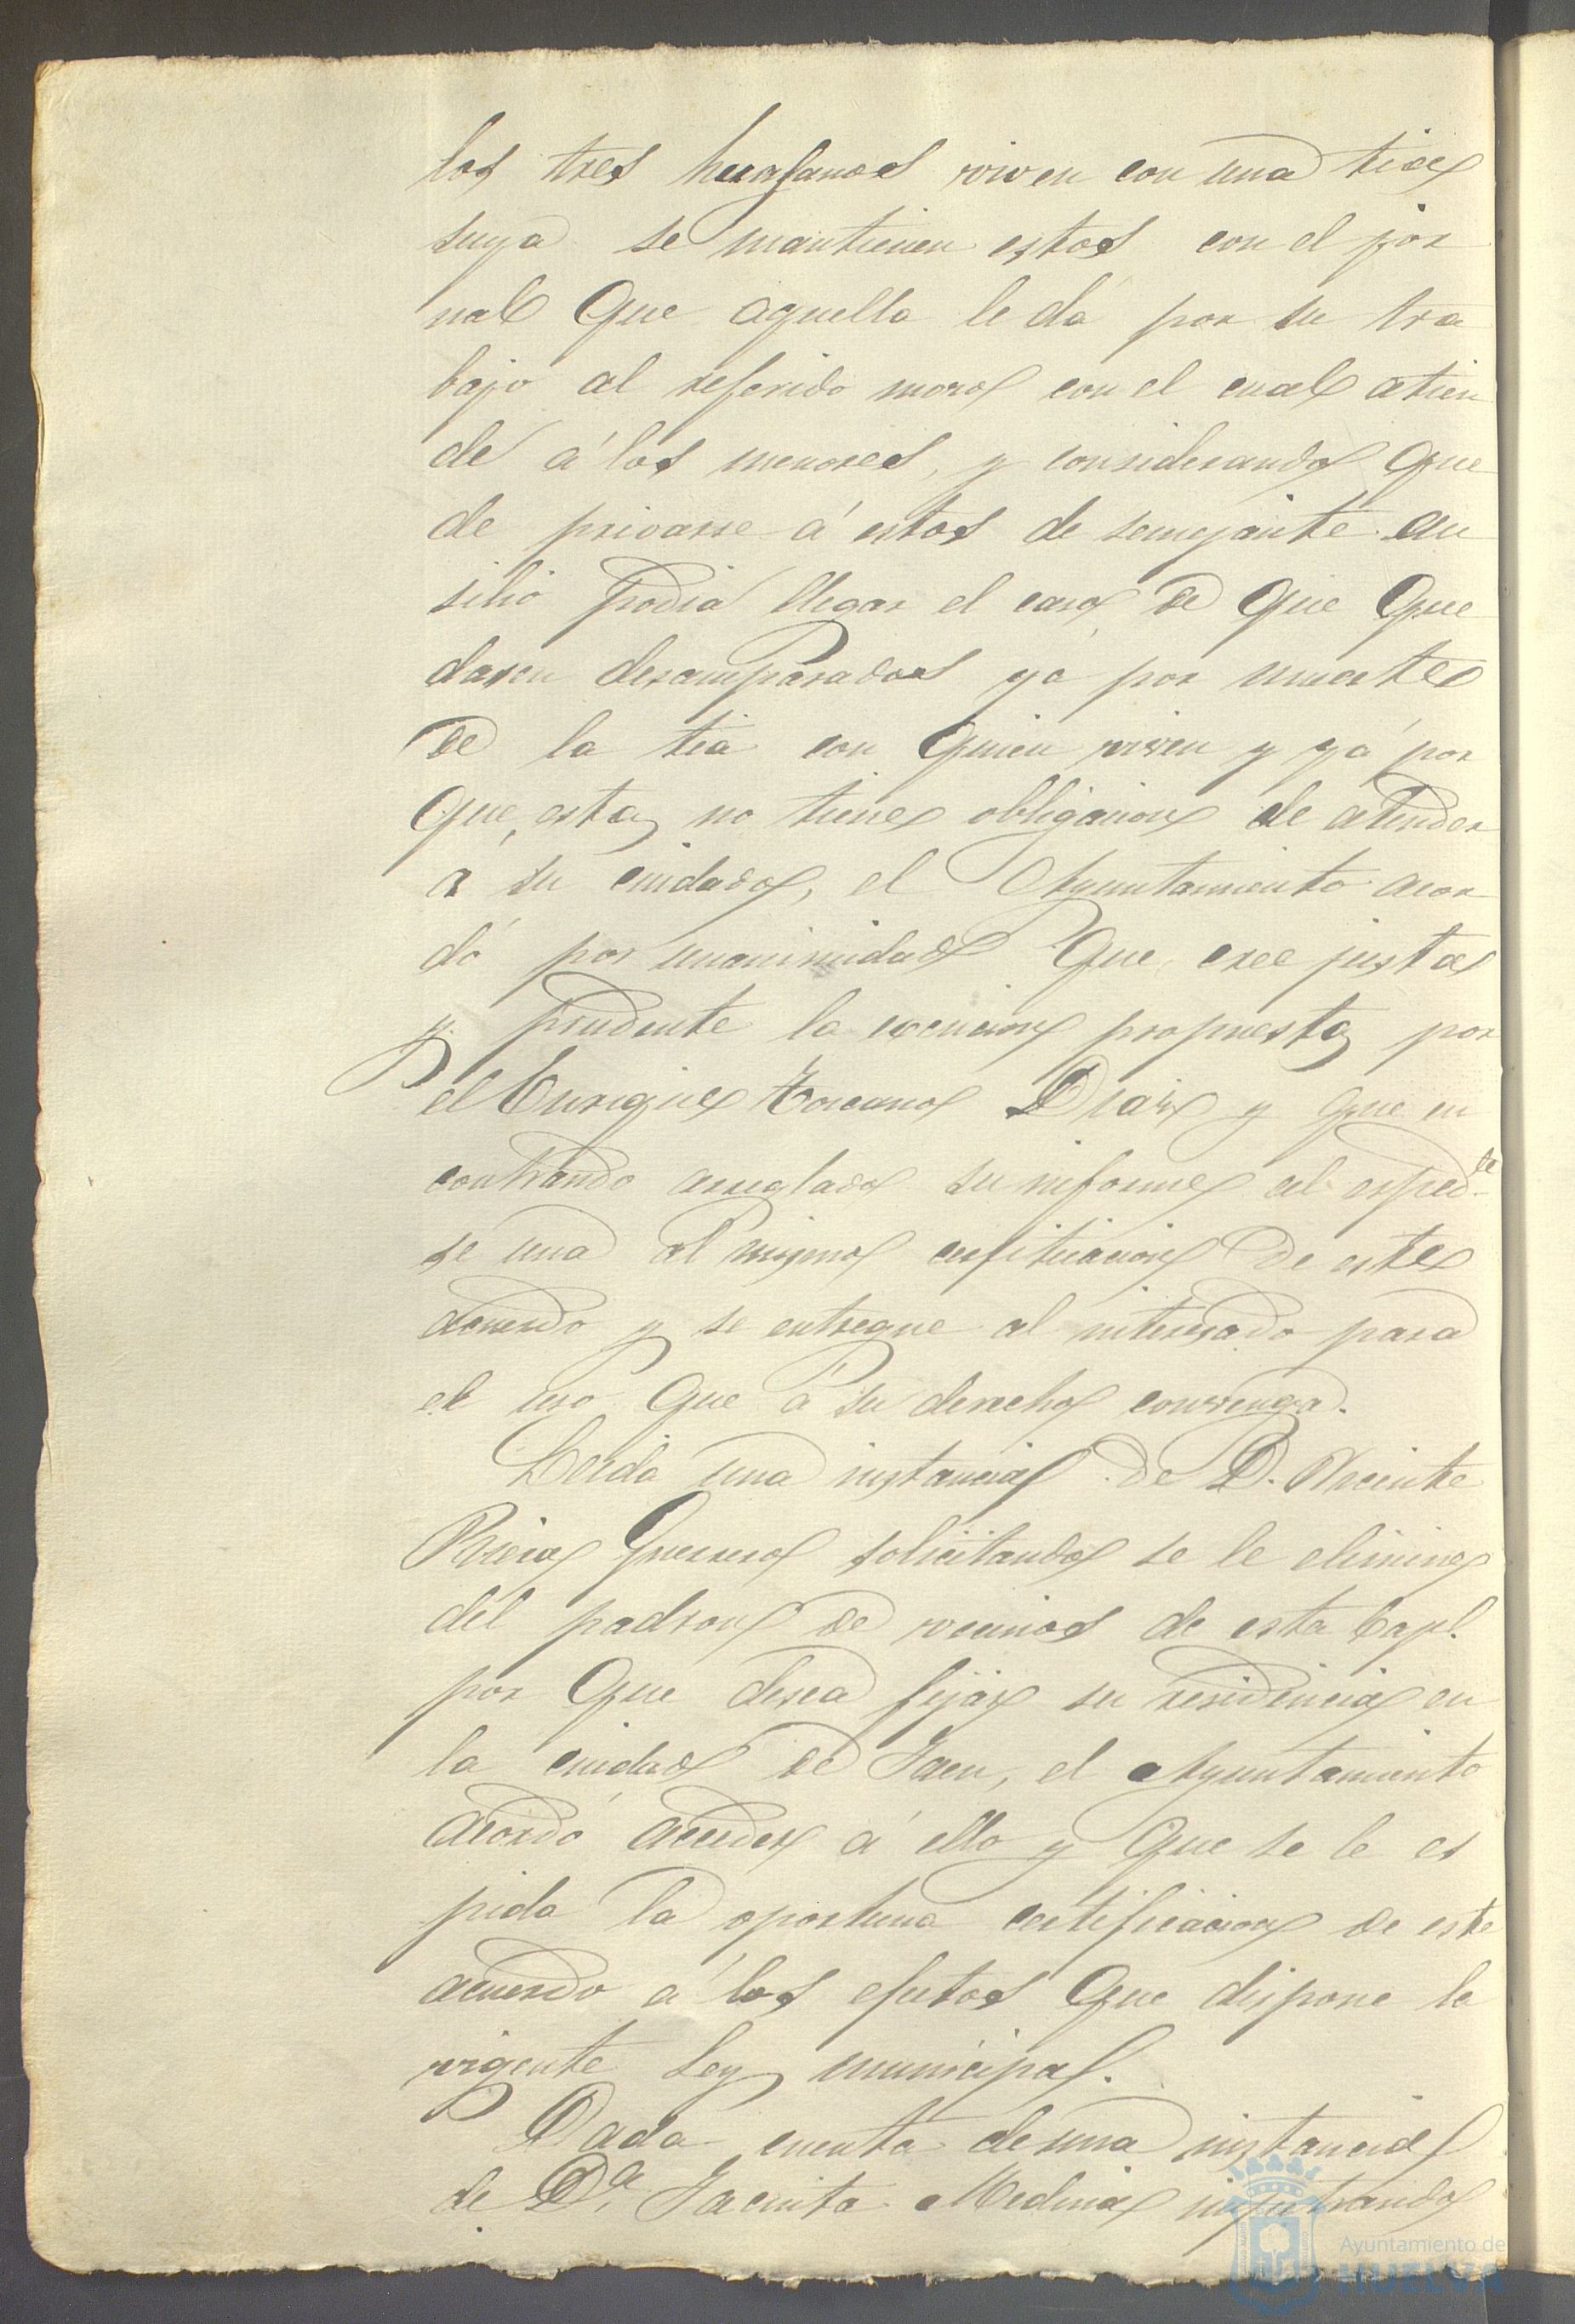 los tres huerfanos viven con una tia
suya se mantienen estos con el jor
nal que aquella le dá por su tra
bajo al referido mozo con el cual atien
de á los menores, y considerando que
de privarse á estos de semejante au
silio podia llegar el caso de que que
dasen desamparados ya por muerte
de la tia con quien viven y yá por
que esta no tiene obligacion de atender
á su cuidado, el Ayuntamiento acor
dó por unanimidad que cree justa
y prudente la excencion propuesta por
el Enrique Toscano Diaz y que en
contrando arreglado su informe al esped.te
se una al mismo certificacion de este
acuerdo y se entregue al interesado para
el uso que á su derecho convenga.
Leida una instancia de D. Vicente
Guerrero solicitando se le elimine
del padron de vecinos de esta Capl.
por que desea fijar su residencia en
la ciudad de Jaen, el Ayuntamiento
acordó acceder á ello y que se le es
pida la oportuna certificacion de este
acuerdo á los efectos que dispone la
vigente Ley municipal.
Dada cuenta de una instancia
de D.ª Jacinta Medina
Ayuntamiento de
HUELVA